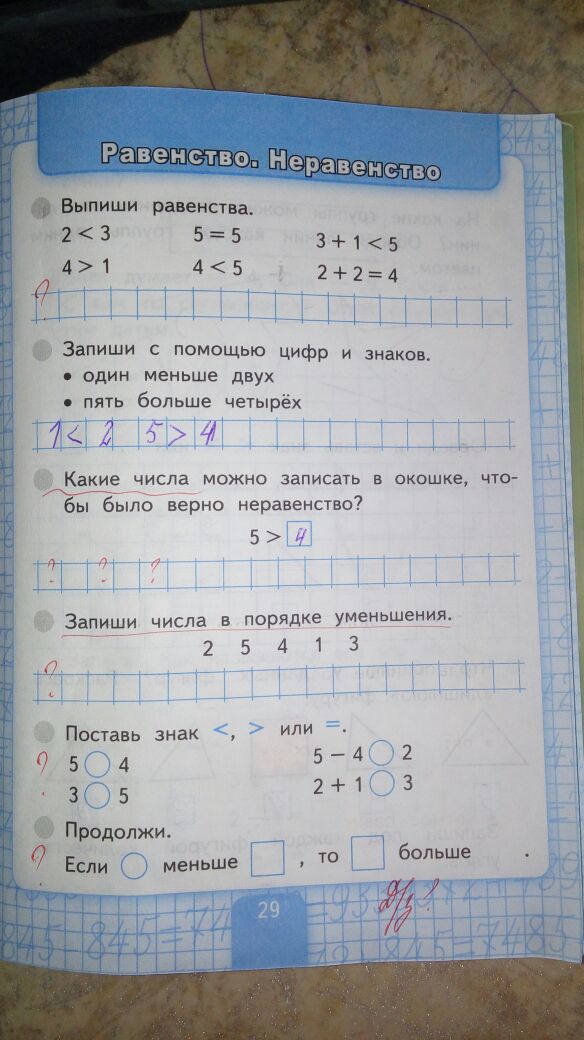 Равенство. Неравенство
Выпиши равенства.
2 < 3 5 = 5 3 + 1 < 5
4 > 1 4 < 5 2 + 2 = 4
?
Запиши с помощью цифр и знаков.
• один меньше двух
• пять больше четырёх
1 < 2 5 > 4
Какие числа можно записать в окошке, что-
бы было верно неравенство?
5 > 4
? ? ?
Запиши числа в порядке уменьшения.
2 5 4 1 3
?
Поставь знак <, > или =.
? 5 4 5 − 4 2
3 5 2 + 1 3
Продолжи.
? Если меньше , то больше .
29
Д/з!